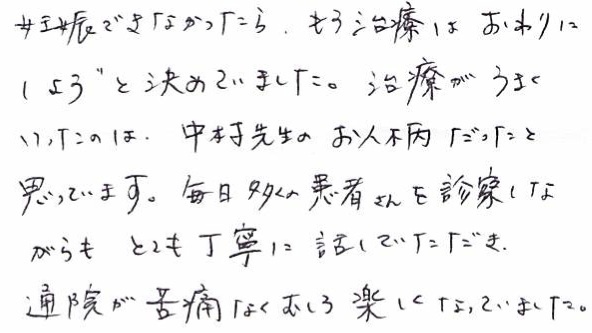 妊娠できなかったら、もう治療はおわりに
しよう”と決めていました。治療がうまく
いったのは、中村先生のお人柄だったと
思っています。毎日多くの患者さんを診察しな
がらも とても丁寧に話していただき、
通院が苦痛なくむしろ楽しくなっていました。